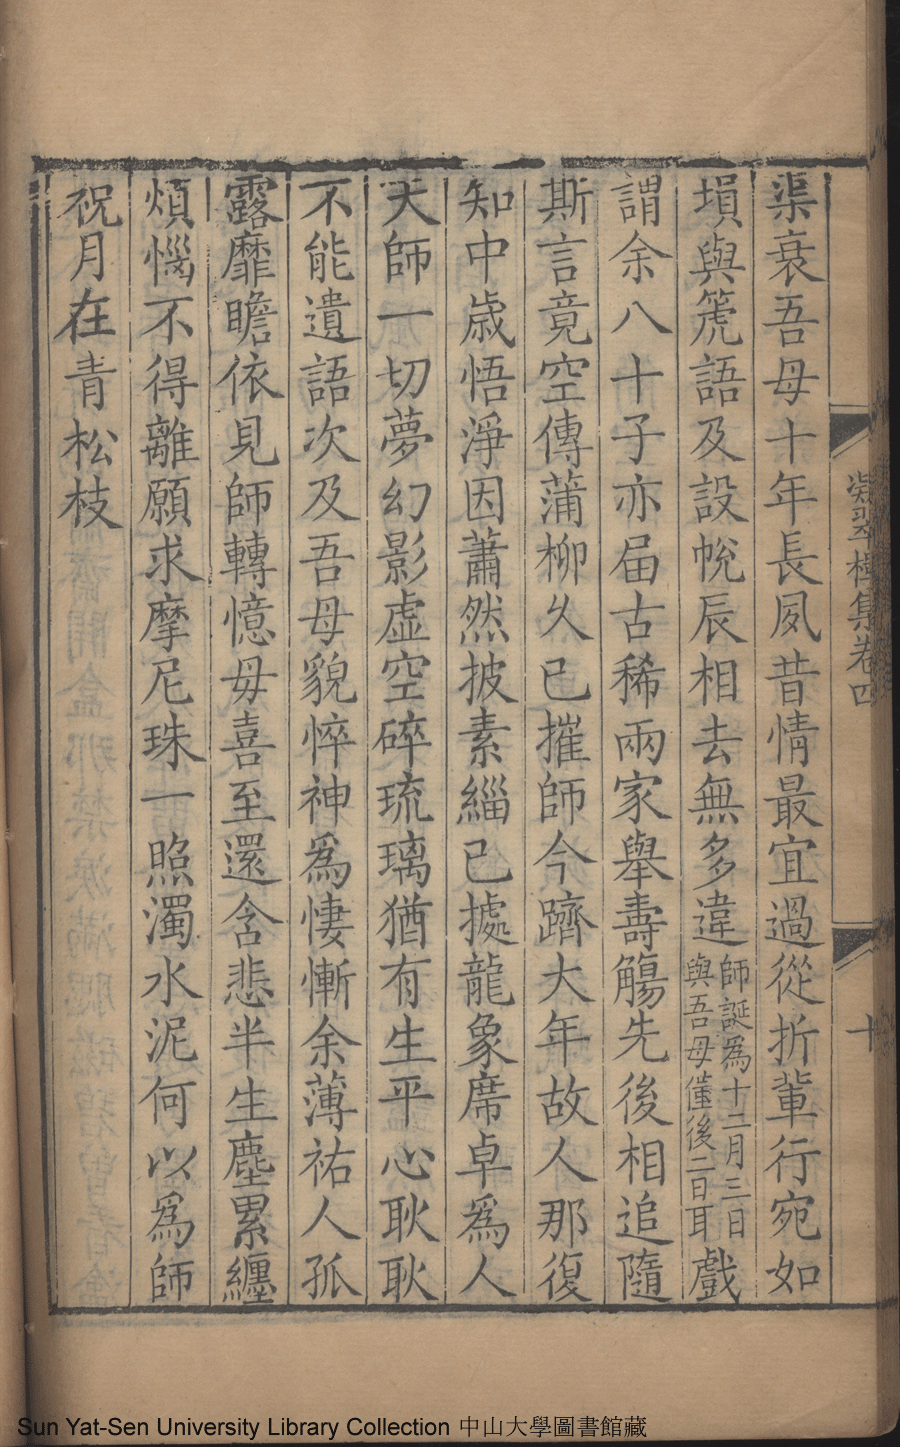 渠衰吾母十年長夙昔情最宜過從折輩行宛如
塤與篪語及設帨辰相去無多違師誕為十二月三日與吾母僅後二日耳戲
謂余八十子亦屆古稀兩家舉壽觴先後相追隨
斯言竟空傳蒲柳久已摧師今躋大年故人那復
知中歲悟淨因蕭然披素緇已據龍象席卓為人
天師一切夢幻影虛空碎琉璃猶有生平心耿耿
不能遺語次及吾母貌悴神為悽慚余薄祐人孤
露靡瞻依見師轉憶毋喜至還含悲半生塵累纏
煩惱不得離願求摩尼珠一照濁水泥何以為師
祝月在青松枝
凝翠樓集卷四
十
Sun Yat-Sen University Library Collection 中山大學圖書館藏